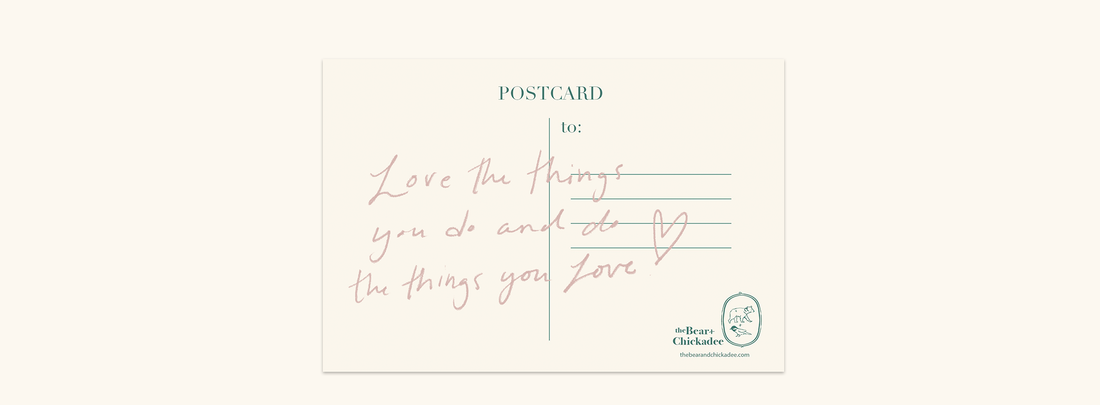 POSTCARD
to:
Love the things
you do and do
the things you Love
theBear+
Chickadee
thebearandchickadee.com